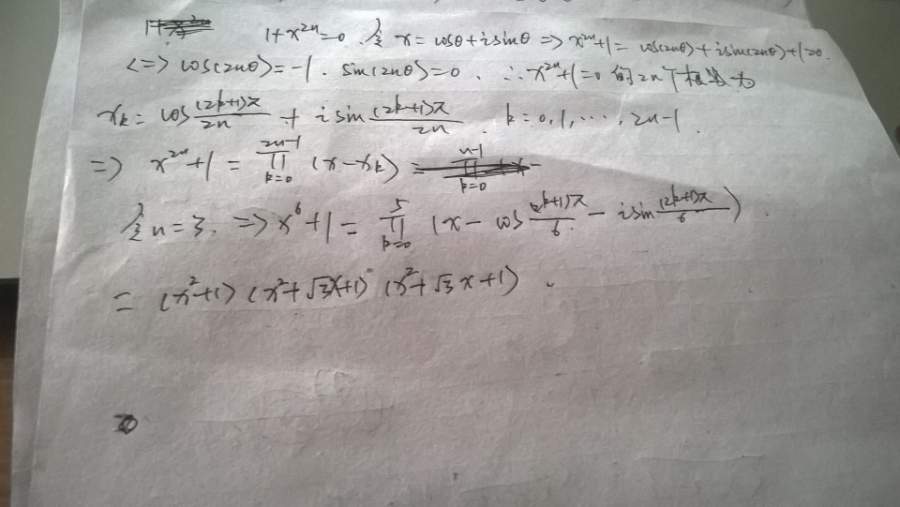 1+x²ⁿ=0. 令 x=cosθ+isinθ => x²ⁿ+1=cos(2nθ)+isin(2nθ)+1=0.
<=> cos(2nθ)=-1. sin(2nθ)=0. ∴x²ⁿ+1=0 的2n个根为
x_k = cos (2k+1)π/2n + i sin (2k+1)π/2n . k=0,1,…,2n-1.
=> x²ⁿ+1 = ∏_{k=0}^{2n-1} (x-x_k)
令n=3. => x⁶+1 = ∏_{k=0}^{5} (x - cos (2k+1)π/6 - isin (2k+1)π/6).
= (x²+1)(x²+√3x+1)(x²+√3x+1).